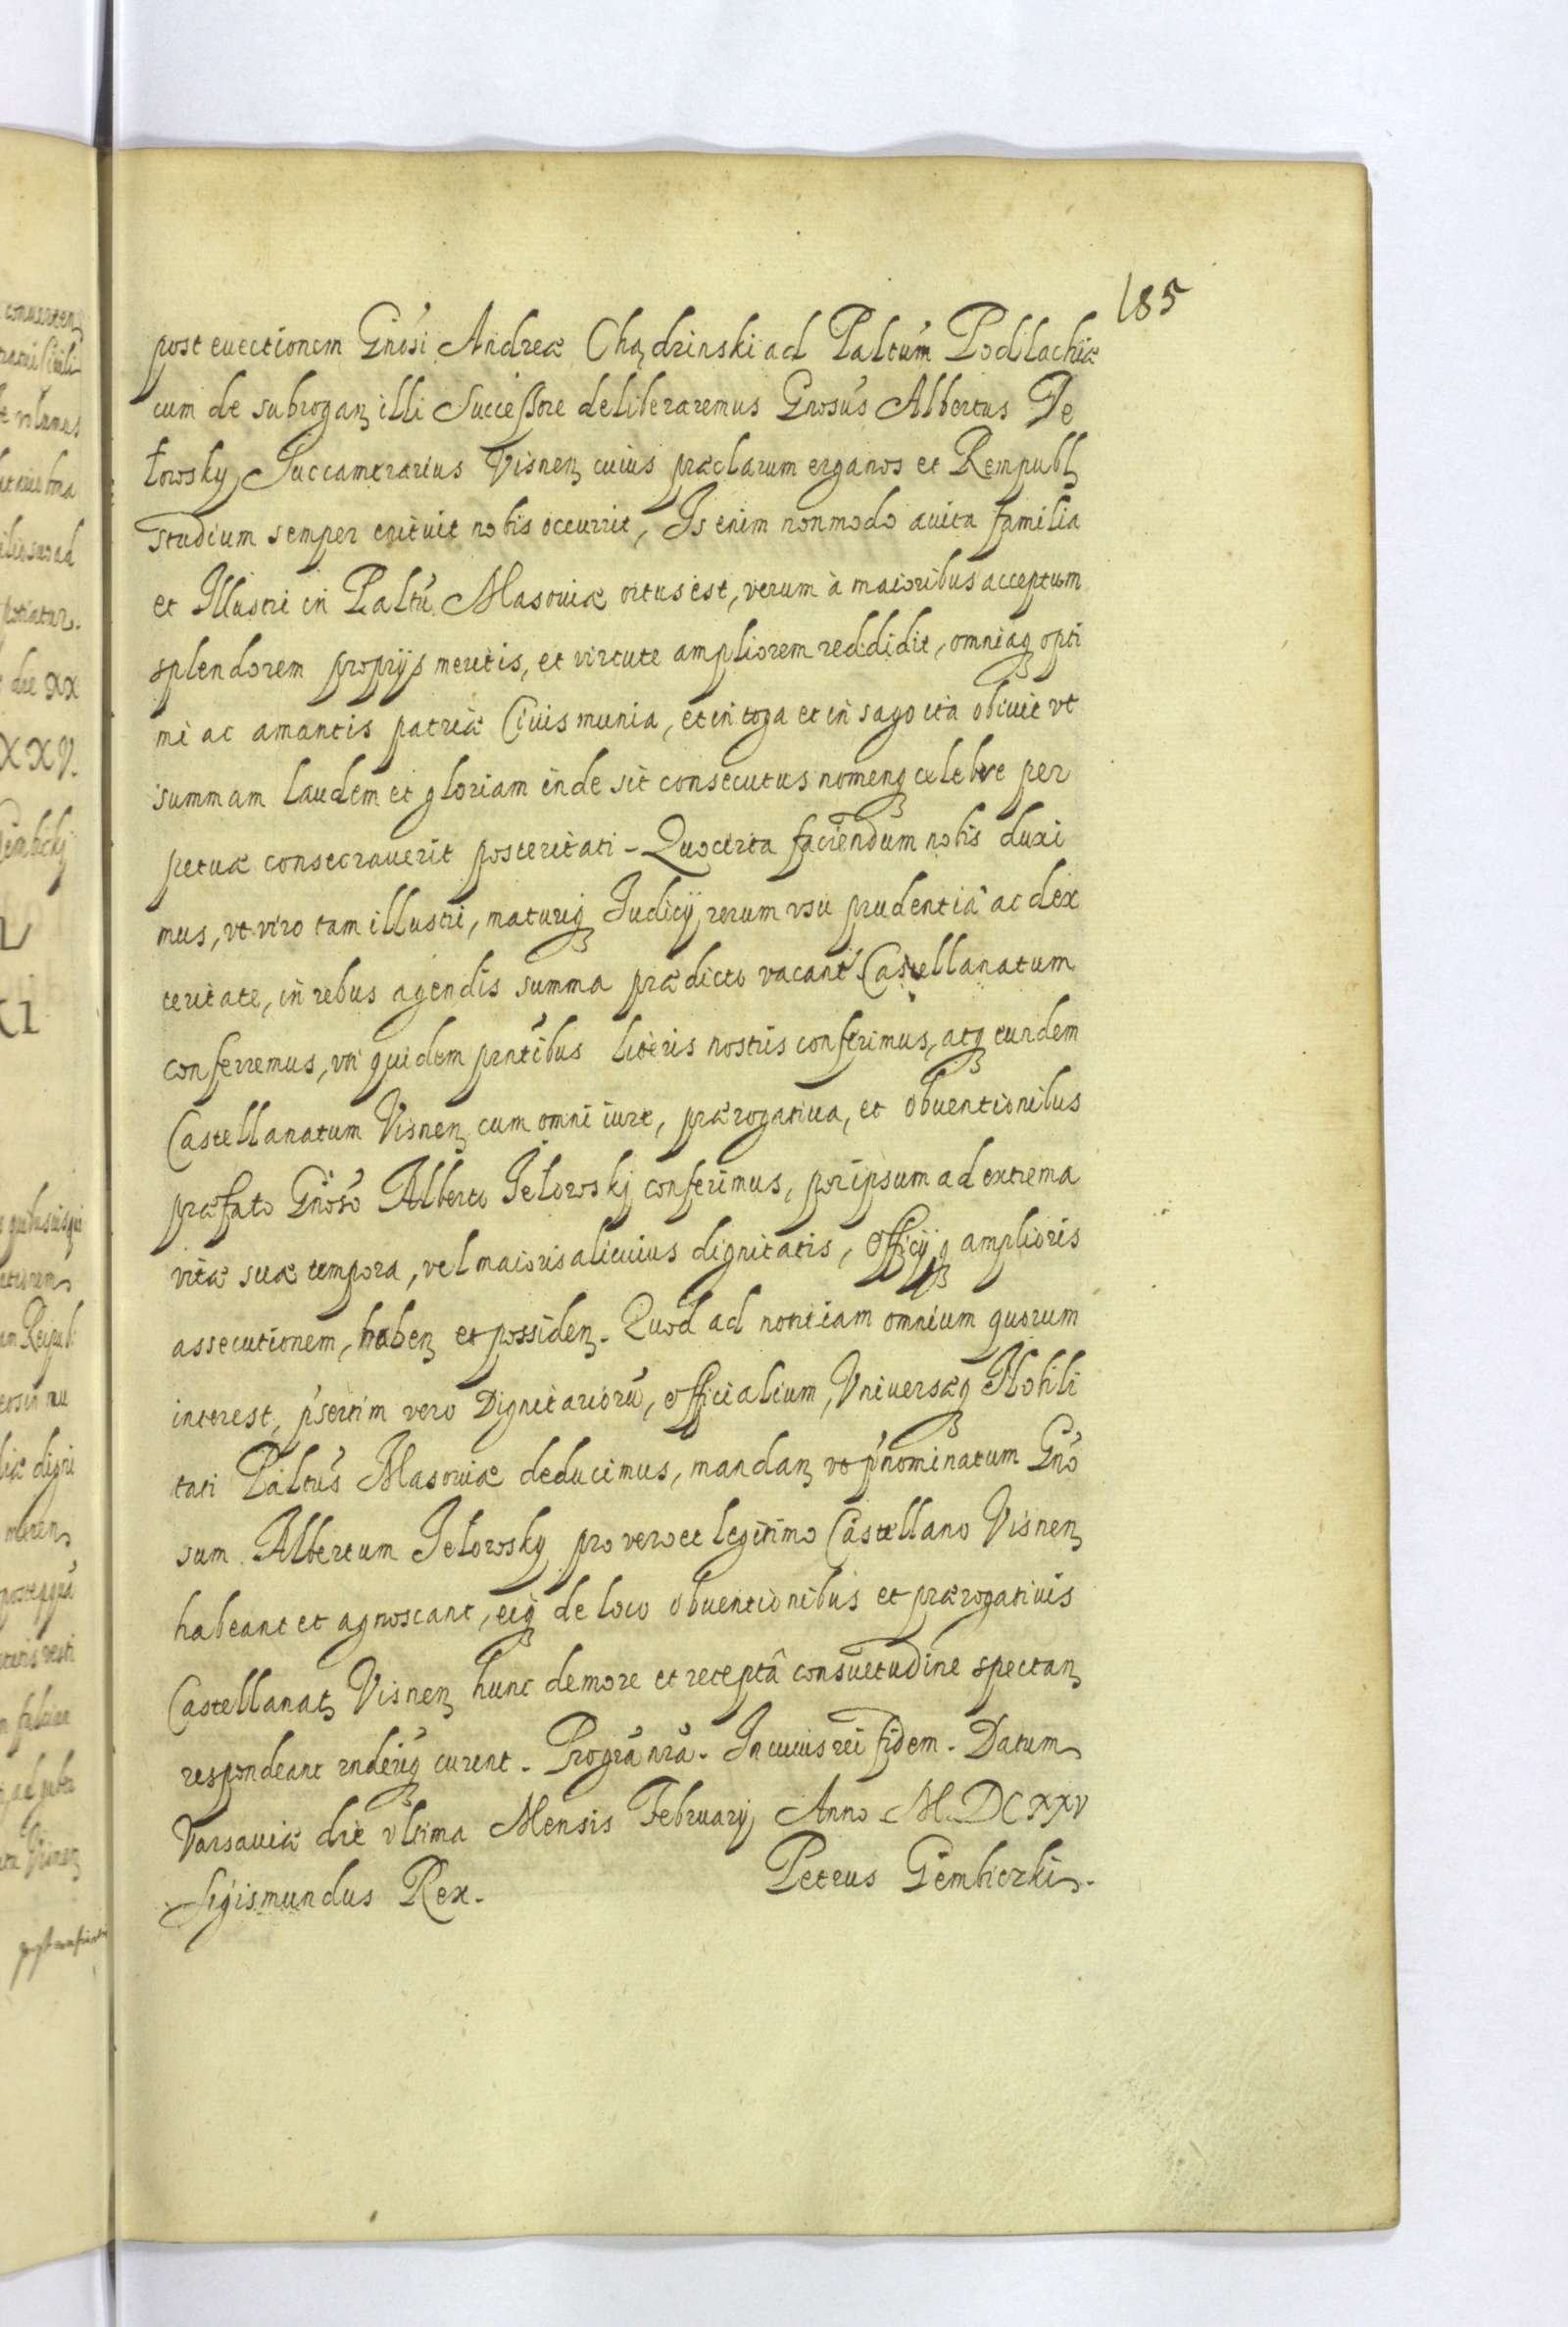 185
post euectionem Gnosi Andreæ Chądzinski ad Paltum Podlachiæ
cum de subrogan illi Successore deliberaremus Gnosus Albertus Je
łowsky Succamerarius Visnen cuius præclarum erga nos et Rempubl
studium semper extitit nobis occurrit, Is enim non modo auita familia
et Illustri in Paltu Masouiæ ortus est, verum à maioribus acceptum
splendorem proprijs meritis, et virtute ampliorem reddidit, omniaq opti
mi ac amantis patriæ Ciuis munia, et in toga et in sago ita obiuit vt
summam laudem et gloriam inde sit consecutus nomenq celebre per
petuæ consecrauerit posteritati - Quocirca faciendum nobis duxi
mus, vt viro tam illustri, maturiq Iudicij, rerum vsu prudentiâ ac dex
teritate, in rebus agendis summa prædicto vacant Castellanatum
conferremus, vti quidem prntibus literis nostris conferimus, atq eundem
Castellanatum Visnen cum omni iure, prærogatiua, et obuentionibus
præfato Gnoso Alberto Jełowskj conferimus, per ipsum ad extrema
vitæ suæ tempora, vel maioris alicuius dignitatis, Officijq amplioris
assecutionem, haben et possiden. Quod ad notitiam omnium quorum
interest, psertim vero Dignitarioru, officialium, Vniuersæq Nobili
tati Paltus Masouiæ deducimus, mandan vt pnominatum Gno
sum Albertum Jełowsky pro vero et legitimo Castellano Visnen
habeant et agnoscant, eiq de loco obuentionibus et prærogatiuis
Castellanat Visnen hunc de more et receptâ consuetudine spectan
respondeant rnderiq curent. Pro gra nra. In cuius rei fidem. Datum
Varsauiæ die vltima Mensis February Anno M.DCXXV
Sigismundus Rex. Petrus Gembiczki.